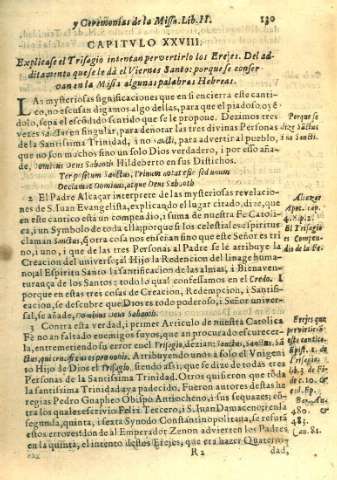 y Ceremonias de la Missa. Lib. II. 130
CAPITULO XXVIII.
Explicase el Trisagio intentan pervertirlo los Erejes. Del ad-
ditamento que se le dá el Viernes Santo: porque se conser
van en la Missa algunas palabras Hebreas.
LAs mysteriosas significaciones que en si encierra este canti-
co, no escusan digamos algo dellas, para que el piadoso, o y é-
dolo, sepa el sentido que se le propone. Dezimos tres
vezes Sanctus en singular, para denotar las tres divinas Personas
de la Santissima Trinidad, i no sancti, para advertir al pueblo,
que no son muchos sino un solo Dios verdadero; i por esso aña-
de, Dominus Deus Sabaoth Hildeberto en sus Distichos.
Ter positum Sanctus, Trinum notat esse sed unum
Declamat Dominus, atque Deus Sabaoth
2 El Padre Alcaçar interprete de las mysteriosas revelacio-
nes de S. Iuan Evangelista, explicando el lugar citado, dize, que
en este cantico está un compendio, i suma de nuestra Fe Catoli-
ca, i un Symbolo de toda ella; porque si los celestiales espiritus
claman Sanctus, q otra cosa nos enseñan sino que este Señor es tri
no, i uno, i que de las tres Personas al Padre se le atribuye la
Creacion del universo; al Hijo la Redencion del linage huma-
no; al Espiritu Santo la santificacion de las almas, i Bienaven-
turança de los Santos: todo lo qual confessamos en el Credo. I
porque en estas tres cosas de Creacion, Redempcion, i Santifi-
cacion, se descubre que Dios es todo poderoso, i Señor univer-
sal, se añade, Dominus Deus Sabaoth.
3 Contra esta verdad, i primer Articulo de nuestra Catolica
Fè no an faltado enemigos suyos, que an procurado escurecer-
la, entremetiendo su error en el Trisagio, dezian: Sanctus, Sanctus, Sā
ctus, qui crucifixus es pro nobis. Atribuyendo a solo el Vnigeni
to Hijo de Dios el Trisagio, siendo assi, que se dize de todas tres
Personas de la Santissima Trinidad. Otros quisieron que toda
la santissima Trinidad aya padecido. Fueron autores destas he
regias Pedro Gnapheo Obispo Antiocheno, i sus sequaces; cō-
tra los quales escrivio Felix Tercero, i S. Iuan Damasceno; en la
segunda, quinta, i sexta Synodo Constantinopolitana, se refutā
estos errores. Al Emperador Zenon advierten los Padres
en la quinta, el intento destos Erejes, que era hazer Quaterni-
R 2 dad,
Porque se
dize Sāctus
i no Sancti.
Alcazar
Apoc. cap.
El Trisagio
es Compen-
dio de la Fe.
Erejes que
pervirtiero
este cantico.
480. &
483.